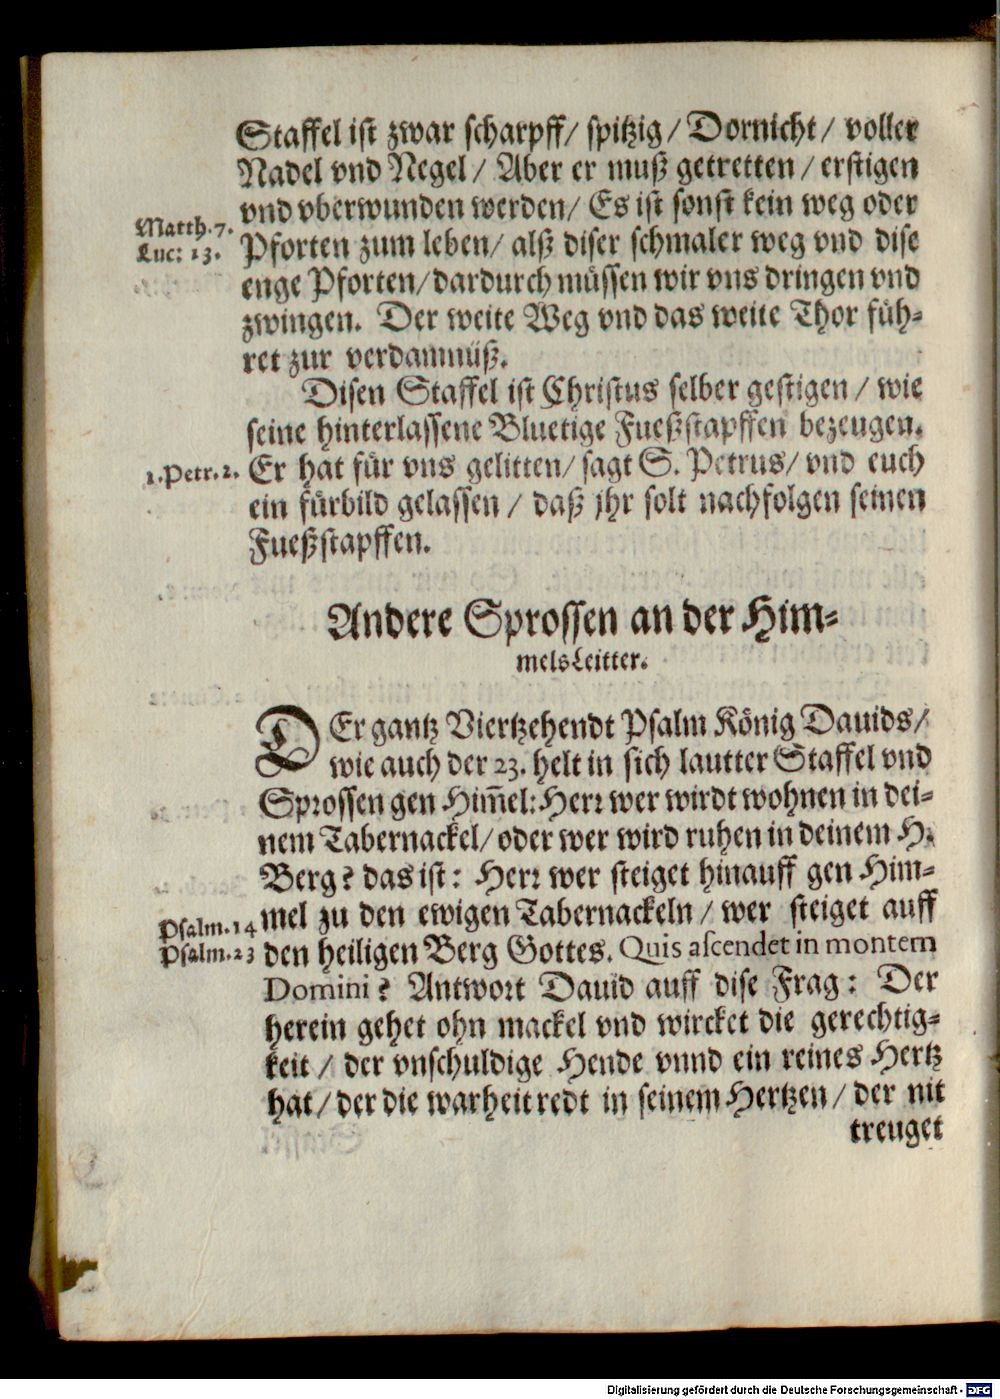 Staffel ist zwar scharpff/ spitzig/ Dornicht/ voller
Nadel vnd Negel/ Aber er muß getretten/ erstigen
vnd vberwunden werden/ Es ist sonst kein weg oder
Matth.7.
Luc: 13.
Pforten zum leben/ alß diser schmaler weg vnd dise
enge Pforten/ dardurch müssen wir vns dringen vnd
zwingen. Der weite Weg vnd das weite Thor füh-
ret zur verdamnüß.
Disen Staffel ist Christus selber gestigen/ wie
seine hinterlassene Bluetige Fueßstapffen bezeugen.
1.Petr.2.
Er hat für vns gelitten/ sagt S. Petrus/ vnd euch
ein fürbild gelassen/ daß jhr solt nachfolgen seinen
Fueßstapffen.
Andere Sprossen an der Him-
melsLeitter.
DEr gantz Viertzehendt Psalm König Dauids/
wie auch der 23. helt in sich lautter Staffel vnd
Sprossen gen Him̄el: Herr wer wirdt wohnen in dei-
nem Tabernackel/ oder wer wird ruhen in deinem H.
Berg? das ist: Herr wer steiget hinauff gen Him-
mel zu den ewigen Tabernackeln/ wer steiget auff
Psalm.14
Psalm.23
den heiligen Berg Gottes. Quis ascendet in montem
Domini? Antwort Dauid auff dise Frag: Der
herein gehet ohn mackel vnd wircket die gerechtig-
keit/ der vnschuldige Hende vnnd ein reines Hertz
hat/ der die warheit redt in seinem Hertzen/ der nit
treuget
Digitalisierung gefördert durch die Deutsche Forschungsgemeinschaft - DFG